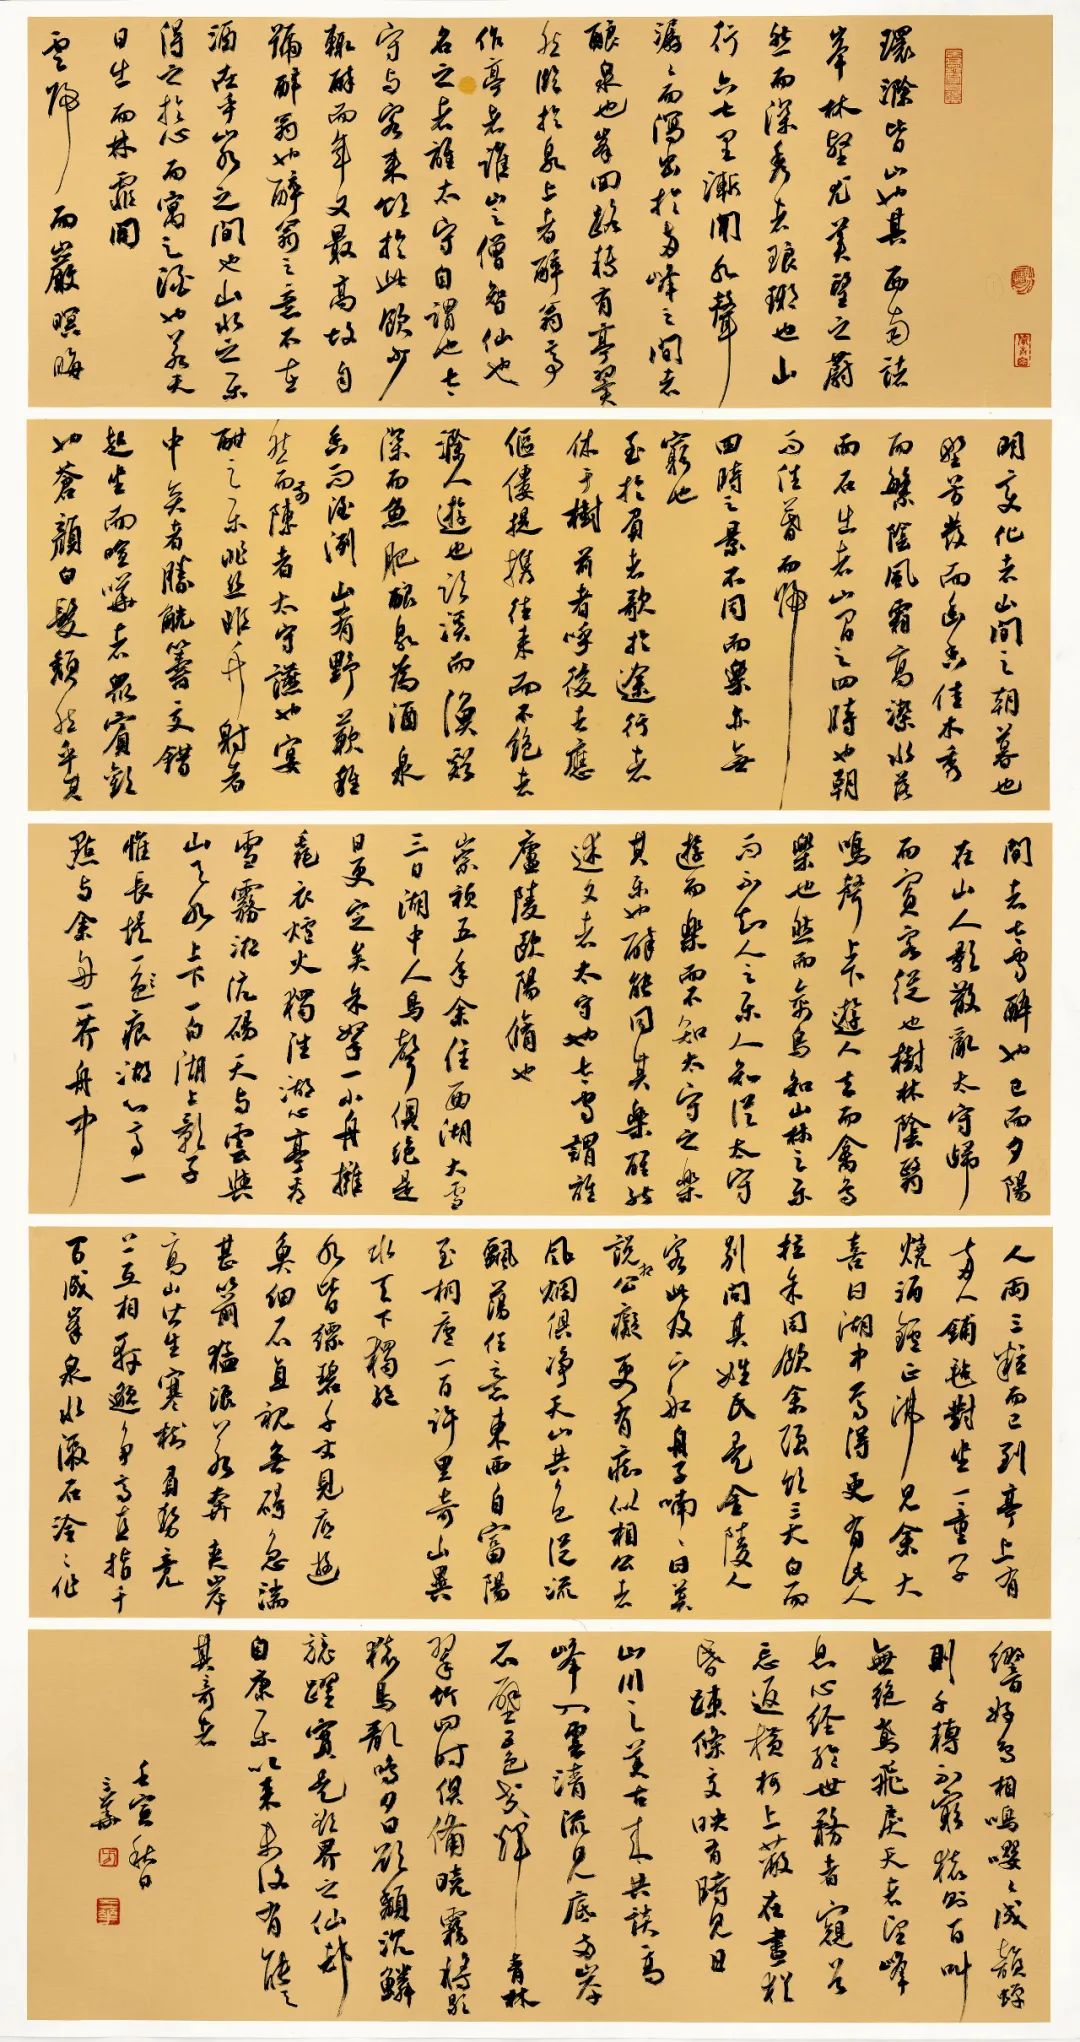 環滁皆山也其西南諸
峯林壑尤美望之蔚
然而深秀者琅琊也山
行六七里漸聞水聲
潺々而瀉出於兩峰之間者
釀泉也峯回路轉有亭翼
然臨於泉上者醉翁亭
作亭者誰山之僧智仙也
名之者誰太守自謂也太
守与客来飲於此飲少
輒醉而年又最高故自
號醉翁也醉翁之意不在
酒在乎山水之間也山水之樂
得之於心而寓之酒也若夫
日出而林霏開
雲歸而巖暝晦
明變化者山間之朝暮也
野芳發而幽香佳木秀
而繁陰風霜高潔水落
而石出者山間之四時也朝
而往暮而歸
四時之景不同而樂亦無
窮也
至於負者歌於途行者
休于樹前者呼後者應
傴僂提攜往来而不絕者
滁人遊也臨溪而漁谿
深而魚肥釀泉為酒泉
香而酒洌山肴野蔌雜
然而前陳者太守讌也宴
酣之樂非絲非竹射者
中奕者勝觥籌交錯
起坐而喧嘩者眾賓歡
也蒼顏白髮頹然乎其
間者太守醉也已而夕陽
在山人影散亂太守歸
而賓客從也樹林陰翳
鳴聲上下遊人去而禽鳥
樂也然而禽鳥知山林之樂
而不知人之樂人知從太守
遊而樂而不知太守之樂
其樂也醉能同其樂醒能
述文者太守也太守謂誰
廬陵歐陽脩也
崇禎五年余住西湖大雪
三日湖中人鳥聲俱絕是
日更定矣余拏一小舟擁
毳衣爐火獨往湖心亭看
雪霧淞沆碭天与雲與
山与水上下一白湖上影子
惟長堤一痕湖心亭一
點与余舟一芥舟中
人兩三粒而已到亭上有
兩人鋪氈對坐一童子
燒酒鑪正沸見余大
喜曰湖中焉得更有此人
拉余同飲余強飲三大白而
別問其姓氏是金陵人
客此及下船舟子喃々曰莫
說相公癡更有痴似相公者
風烟俱净天山共色從流
飄蕩任意東西自富陽
至桐廬一百許里奇山異
水天下獨絕
水皆縹碧千丈見底遊
魚細石直視無礙急湍
甚箭猛浪若奔夾岸
高山皆生寒樹負勢競
上互相軒邈爭高直指千
百成峯泉水激石泠々作
響好鳥相鳴嚶々成韻蟬
則千轉不窮猿則百叫
無絕鳶飛戾天者望峰
息心經綸世務者窺谷
忘返橫柯上蔽在晝猶
昏疎條交映有時見日
山川之美古来共談高
峰入雲清流見底兩岸
石壁五色交輝青林
翠竹四时俱備曉霧將歇
猿鳥亂鳴夕日欲頹沉鱗
競躍實是欲界之仙都
自康樂以来未復有能與
其奇者
壬寅秋日
三華